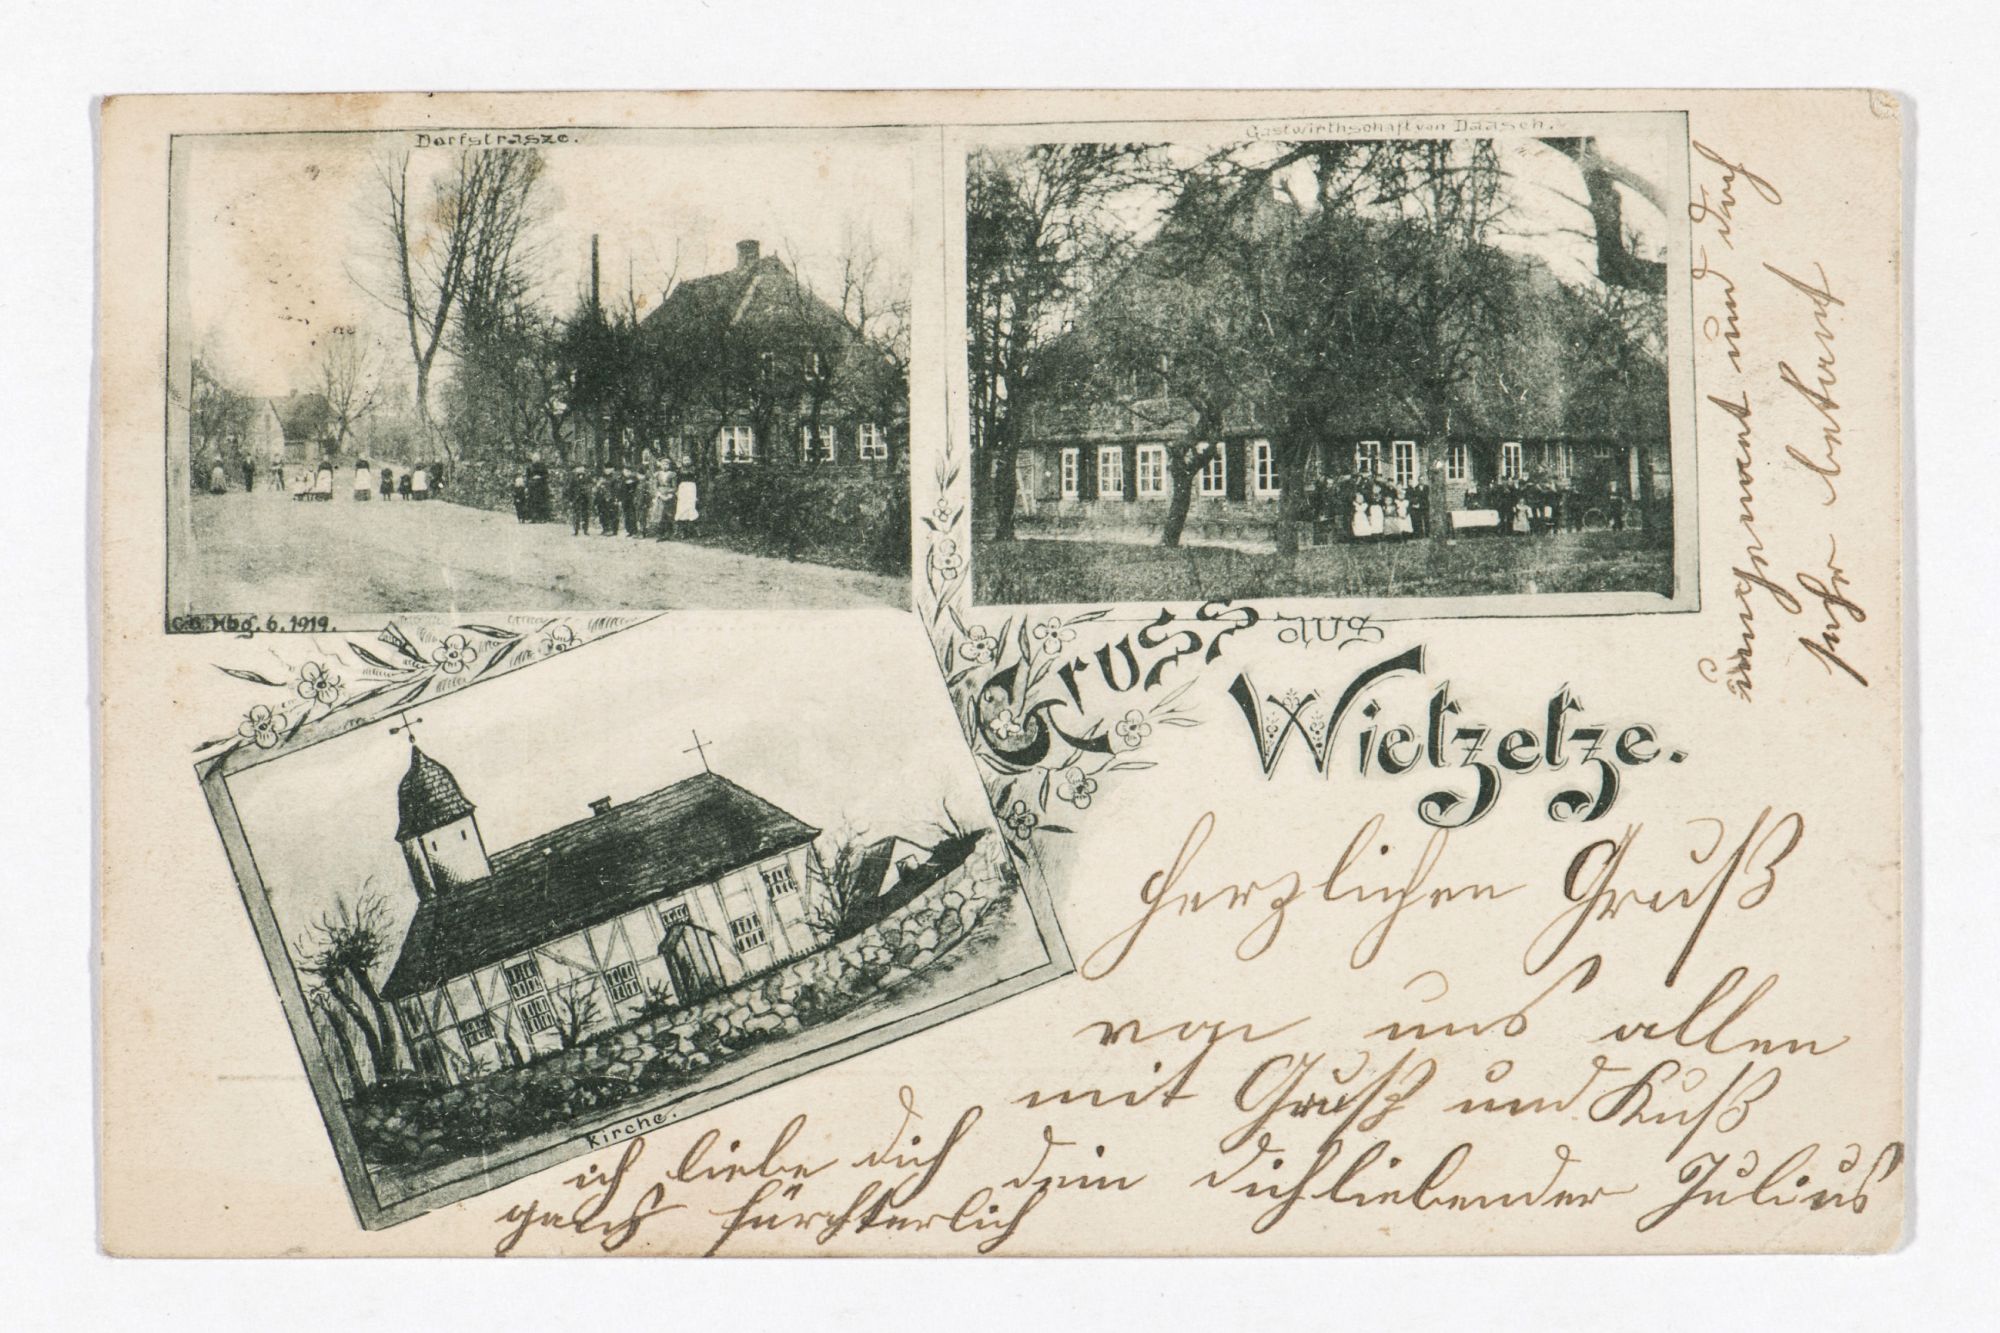 Dorfstrasze.
Gastwirthschaft von Daasch.
C.B. Hbg. 6. 1919.
Gruss aus
Wietzetze.
Kirche.
herzlichen Gruß
von uns allen
mit Gruß und Kuß
ich liebe dich
ganz fürchterlich
dein dichliebender Julius
ungenannt und doch
sehr bekannt